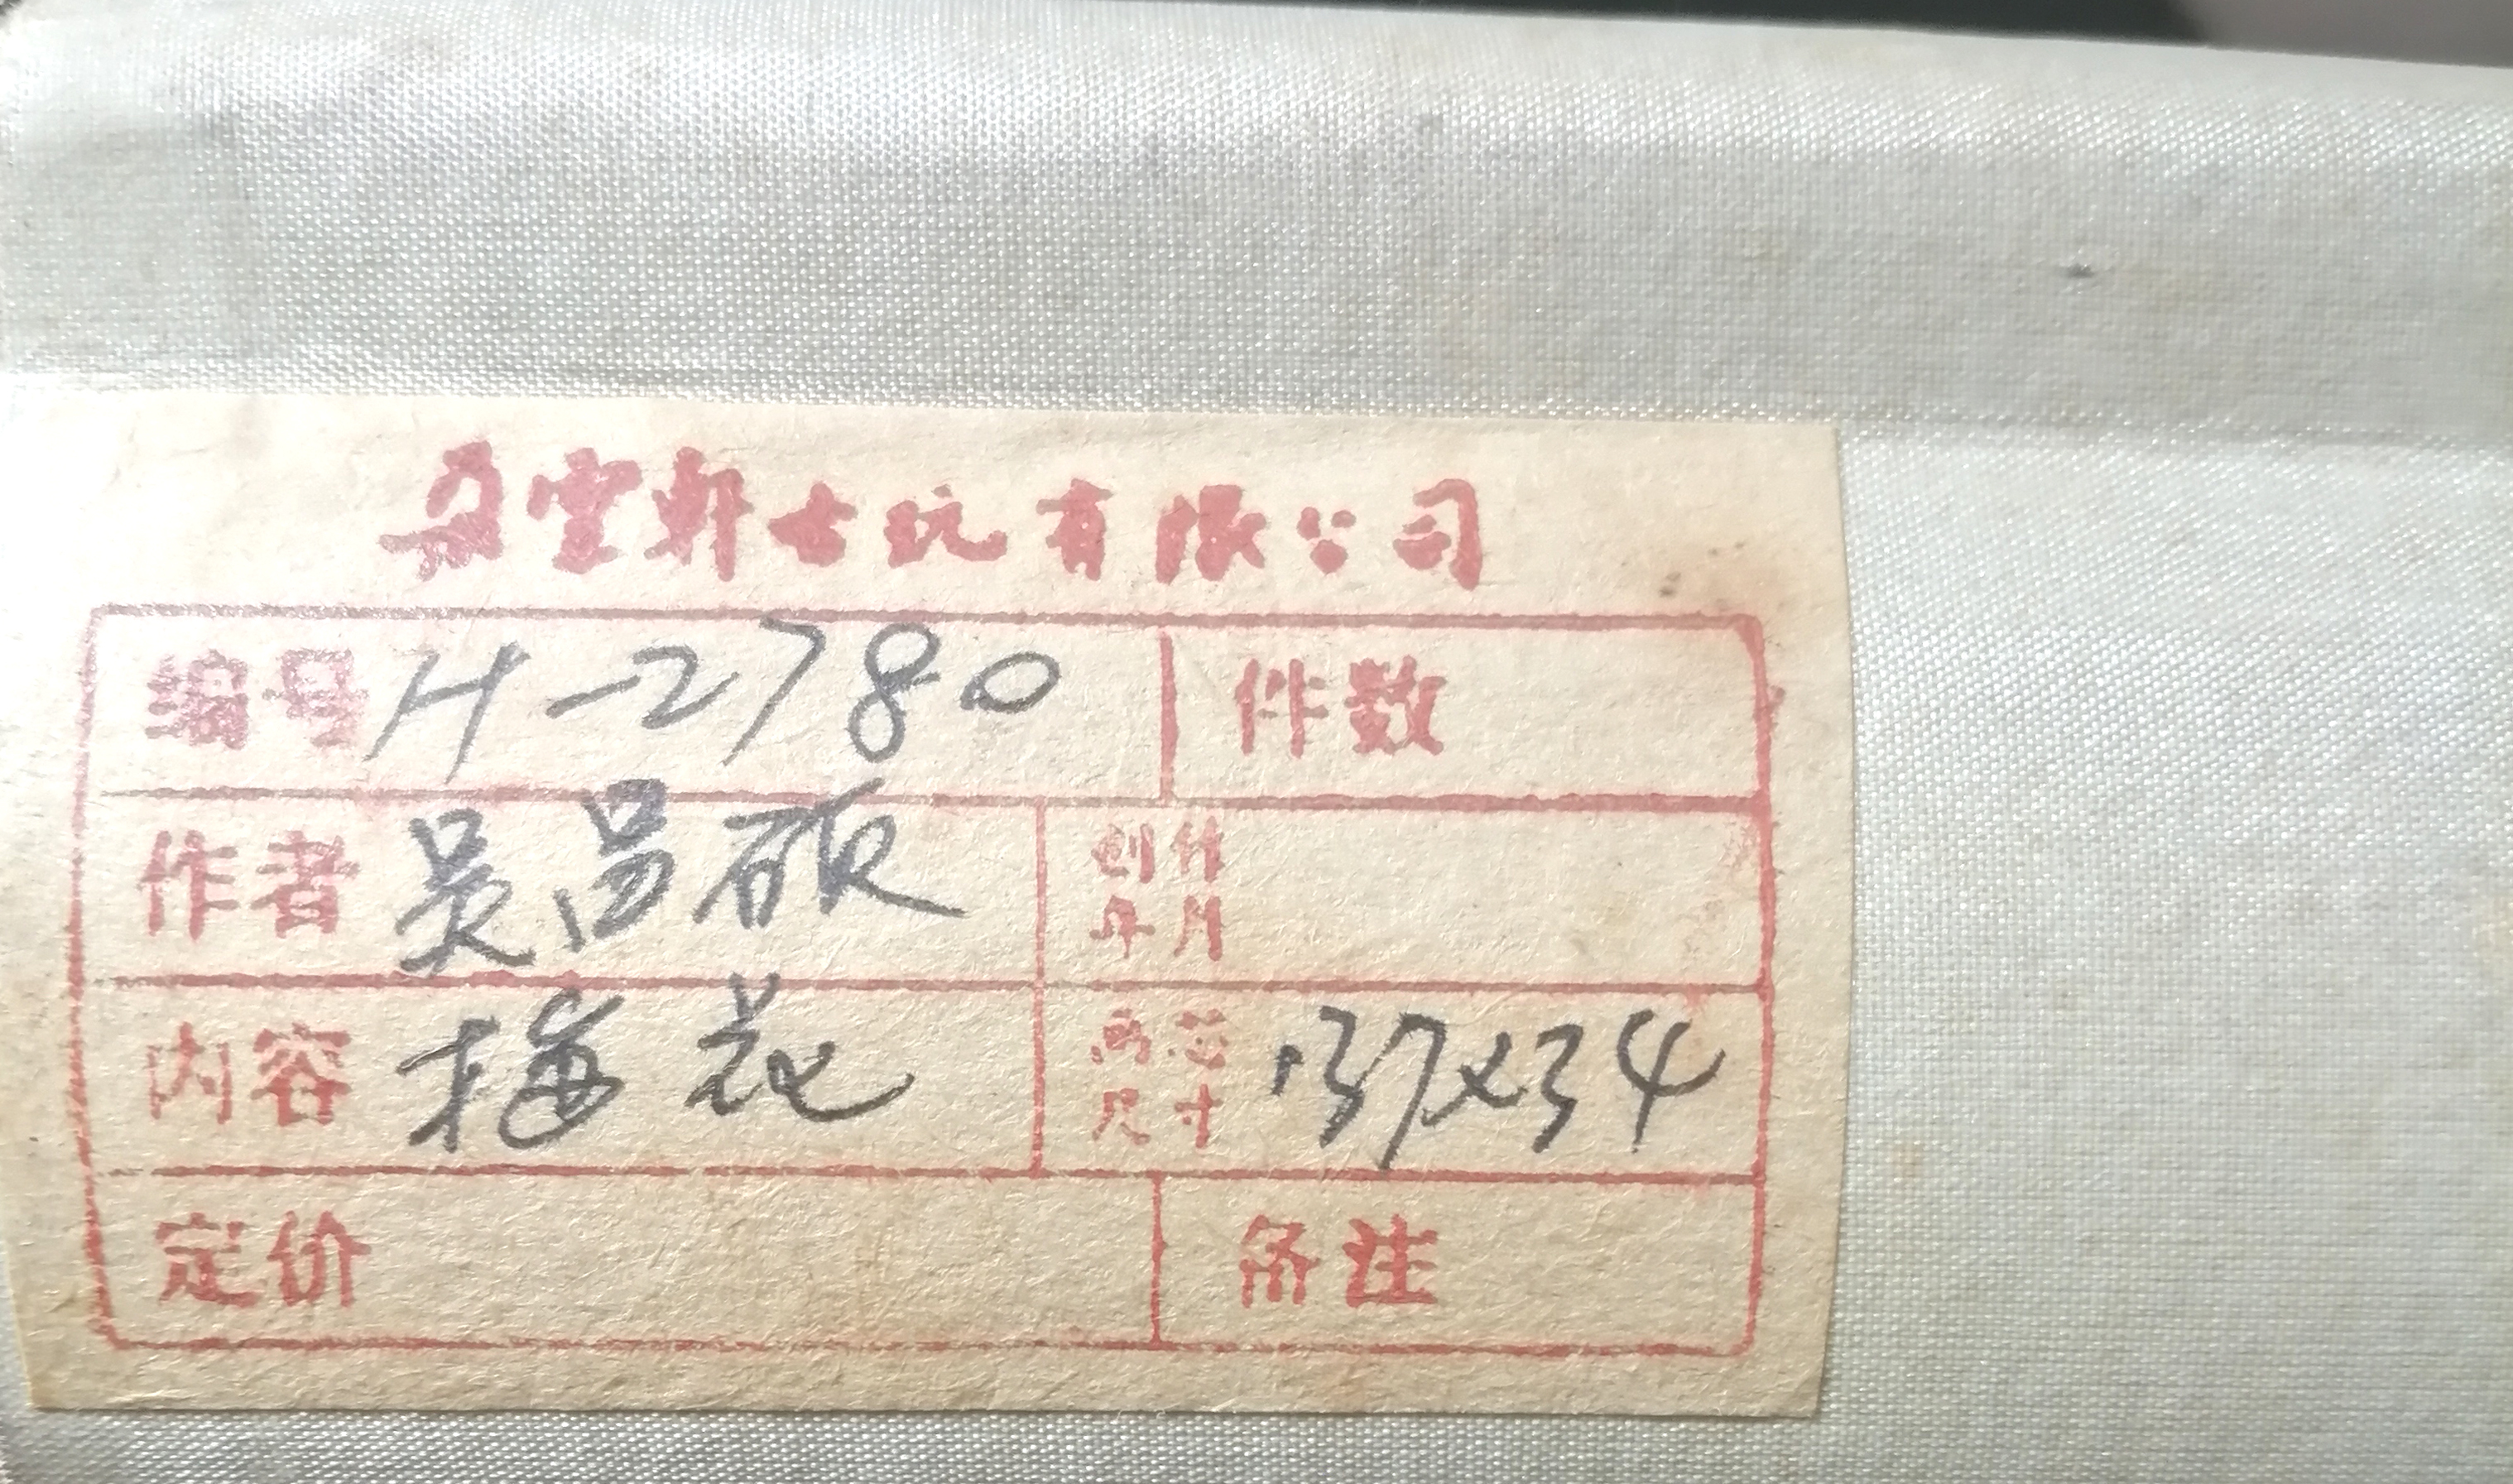 朵雲軒古玩有限公司
编号 H-2780 件数
作者 吴昌硕 创作年月
内容 梅花 画芯尺寸 137x34
定价 备注